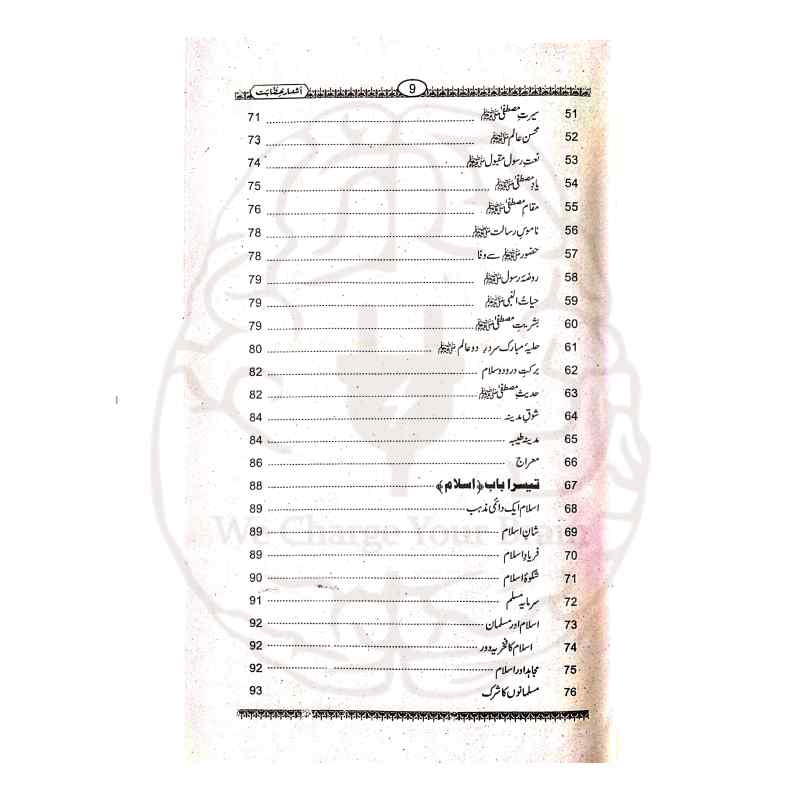 اشعارِ خطابت 9
51 سیرتِ مصطفیٰ ﷺ 71
52 محسن عالم ﷺ 73
53 نعت رسول مقبول ﷺ 74
54 یادِ مصطفیٰ ﷺ 75
55 مقامِ مصطفیٰ ﷺ 76
56 ناموسِ رسالت ﷺ 78
57 حضور ﷺ سے وفا 78
58 روضۂ رسول ﷺ 79
59 حیات النبی ﷺ 79
60 بشریتِ مصطفیٰ ﷺ 79
61 حلیۂ مبارک سردرِ دو عالم ﷺ 80
62 برکتِ درود و سلام 82
63 حدیثِ مصطفیٰ ﷺ 82
64 شوقِ مدینہ 84
65 مدینہ طیبہ 84
66 معراج 86
67 تیسرا باب ﴿اسلام﴾ 88
68 اسلام ایک دائمی مذہب 89
69 شانِ اسلام 89
70 فریادِ اسلام 89
71 شکوۂ اسلام 90
72 سرمایہ مسلم 91
73 اسلام اور مسلمان 92
74 اسلام کا فخریہ دور 92
75 مجاہد اور اسلام 92
76 مسلمانوں کا شرک 93
We Charge Your Brain